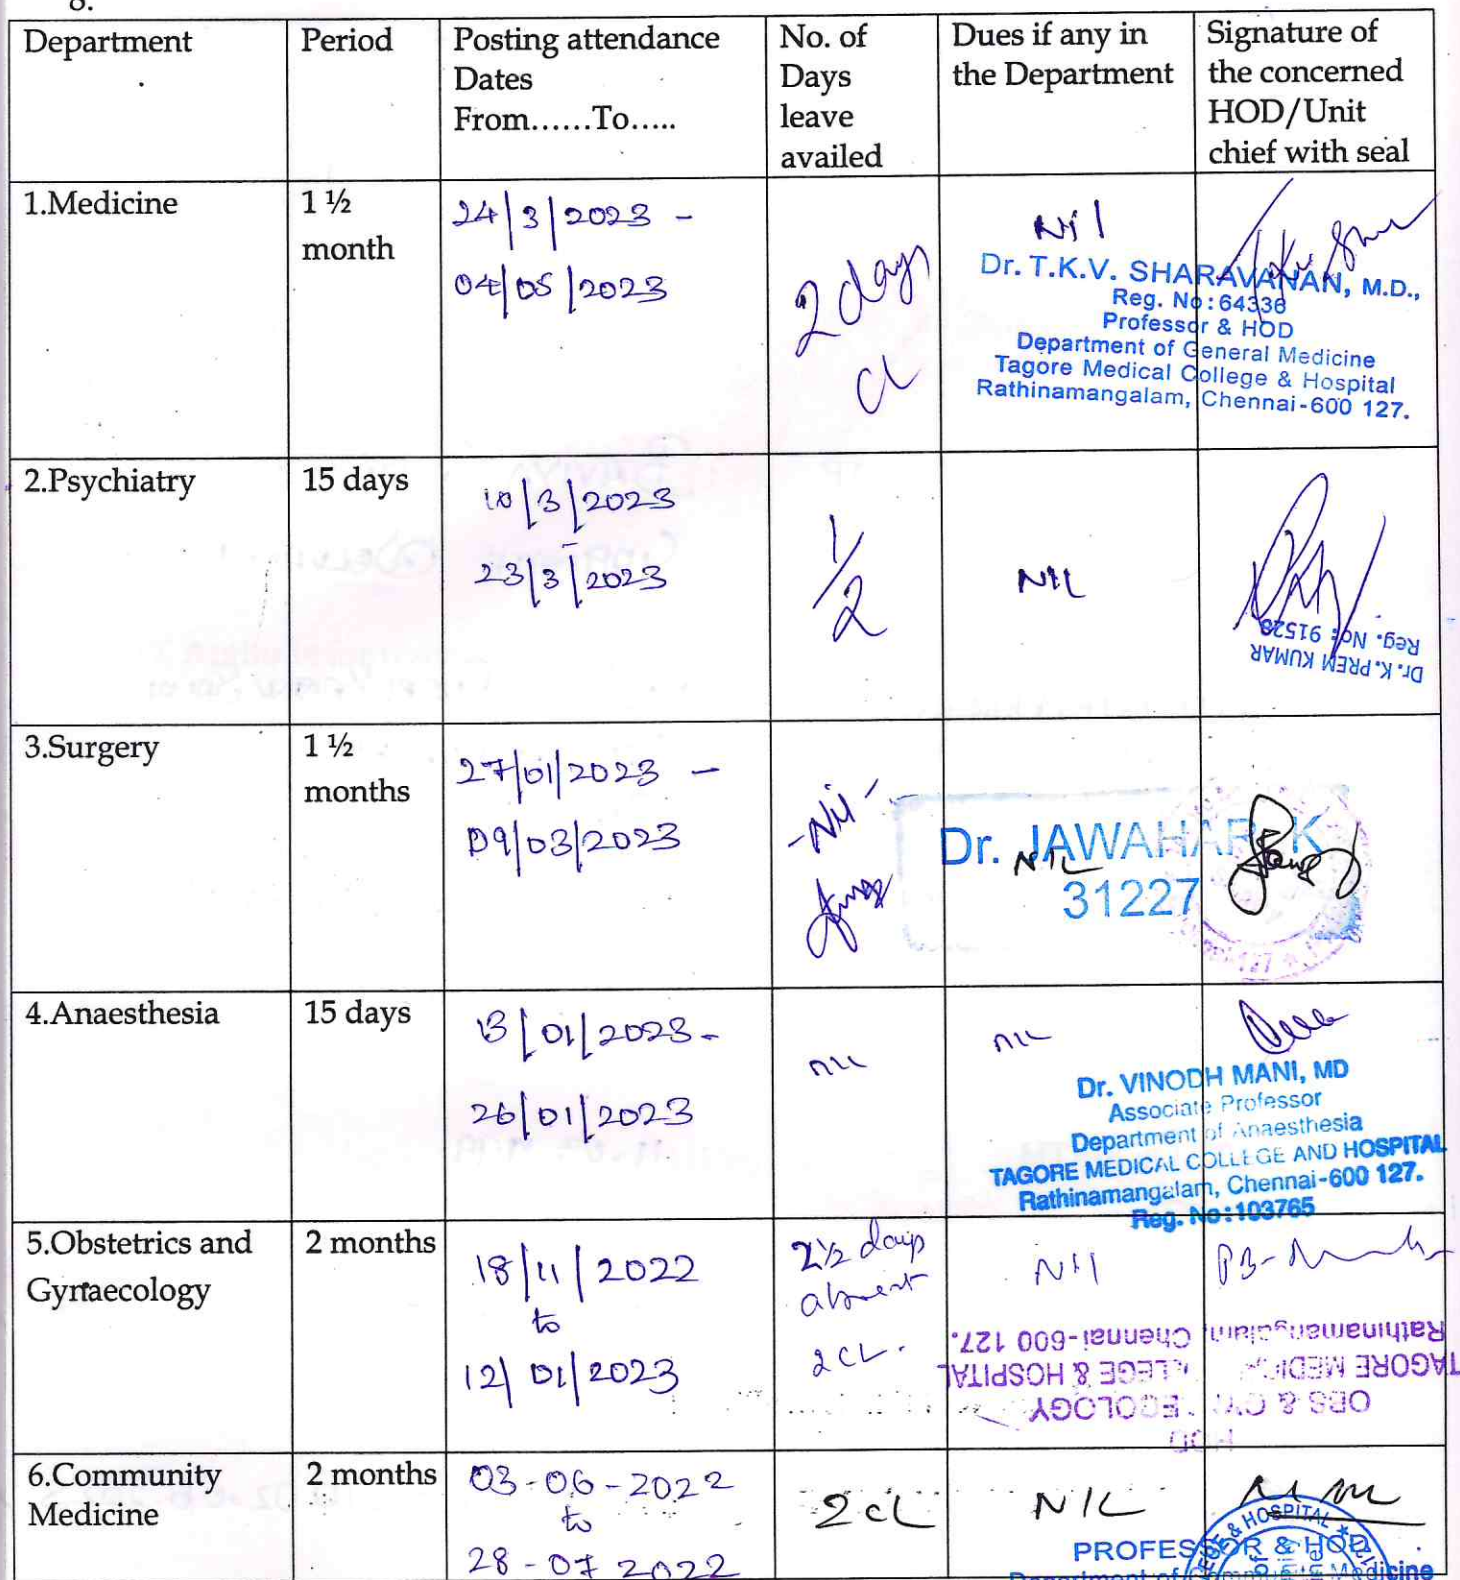 8.
Department
Period
Posting attendance
Dates
From......To.....
No. of
Days
leave
availed
Dues if any in
the Department
Signature of
the concerned
HOD/Unit
chief with seal
1.Medicine
1 ½
month
24/3/2023 -
04/05/2023
2 days
CL
Nil
Dr. T.K.V. SHARAVANAN, M.D.,
Reg. No:64336
Professor & HOD
Department of General Medicine
Tagore Medical College & Hospital
Rathinamangalam, Chennai-600 127.
2.Psychiatry
15 days
10/3/2023
-
23/3/2023
1/2
NIL
Dr. K. PREM KUMAR
Reg. No: 91526
3.Surgery
1 ½
months
27/01/2023 -
09/03/2023
-Nil-
NIL
Dr. JAWAHAR K
31227
4.Anaesthesia
15 days
13/01/2023-
26/01/2023
nil
nil
Dr. VINODH MANI, MD
Associate Professor
Department of Anaesthesia
TAGORE MEDICAL COLLEGE AND HOSPITAL
Rathinamangalam, Chennai-600 127.
Reg. No:103765
5.Obstetrics and
Gynaecology
2 months
18/11/2022
to
12/01/2023
2½ days
absent
2 CL.
Nil
HOD
OBS & GYNECOLOGY
TAGORE MEDICAL COLLEGE & HOSPITAL
Rathinamangalam, Chennai-600 127.
6.Community
Medicine
2 months
03-06-2022
to
28-07-2022
2 CL
NIL
PROFESSOR & HOD
Department of Community Medicine
& HOSPITAL